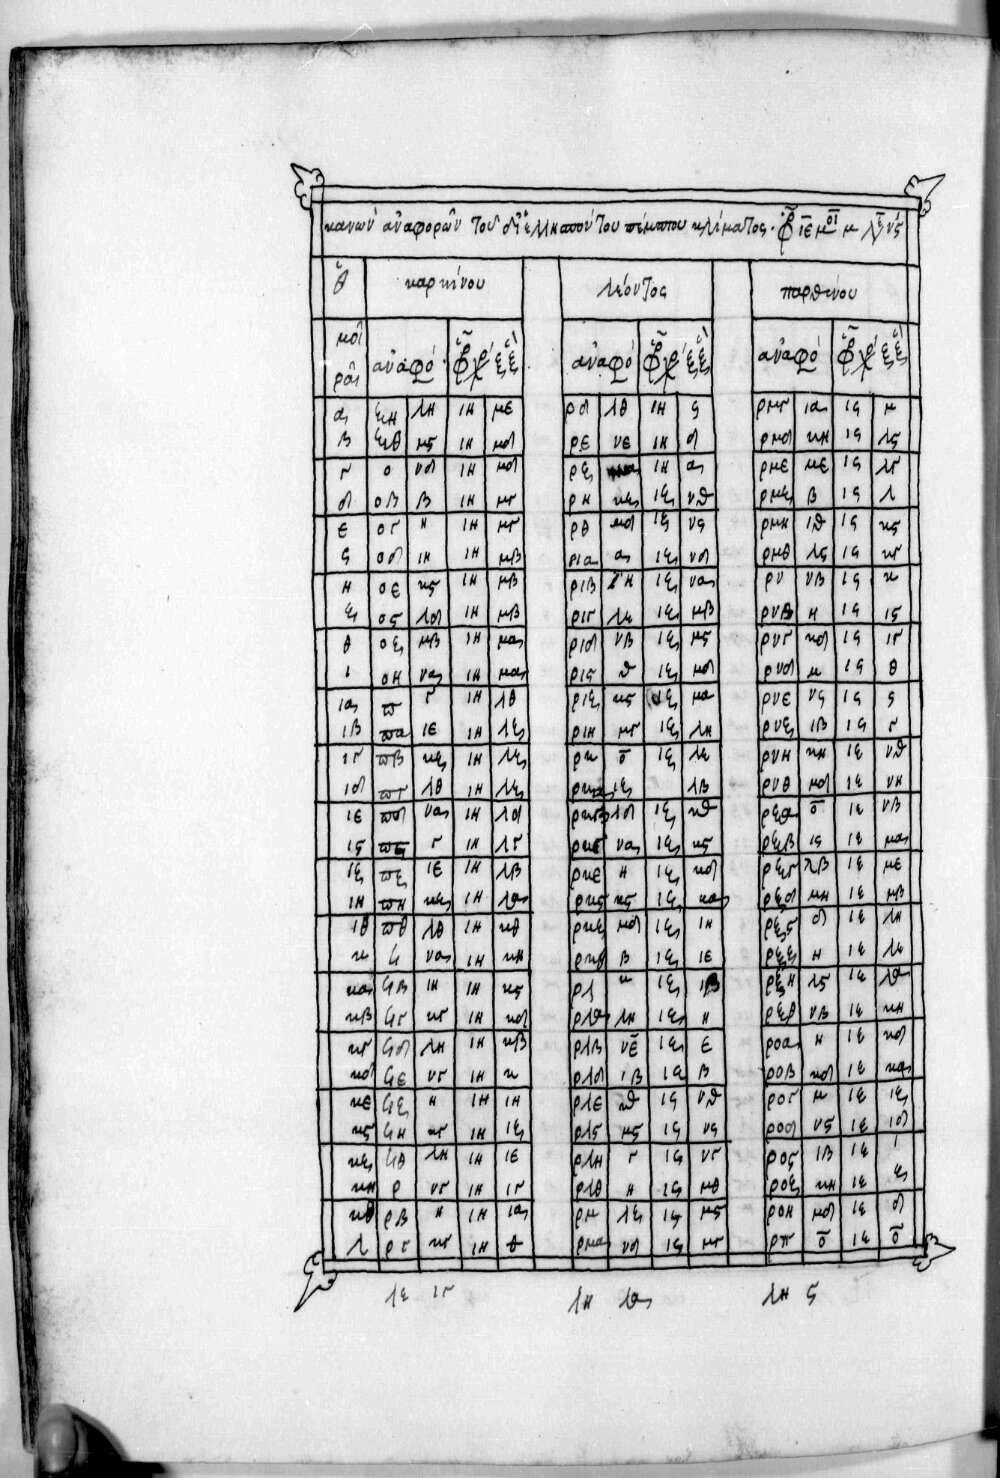 κανων ἀναφορῶν τοῦ δι ἑλλησπόντου πέμπτου κλίματος · ιε μ
καρκίνου λέοντος παρθένου
μοῖ
ραι ἀναφό ἀναφό ἀναφό
α ξη λη ιη με ρδ λθ ιη ϛ ρμγ ια ιϛ μ
β ξθ μϛ ιη μδ ρε νε ιη δ ρμδ κη ιϛ λϛ
γ ο νδ ιη μδ ρζ ιη α ρμε με ιϛ λγ
δ οβ β ιη μγ ρη κζ ιζ νθ ρμζ β ιϛ λ
ε ογ η ιη μγ ρθ μδ ιζ νϛ ρμη ιθ ιϛ κϛ
ϛ οδ ιη ιη μβ ρια α ιζ νδ ρμθ λϛ ιϛ κγ
η οε κϛ ιη μβ ριβ ιη ιζ να ρν νβ ιϛ κ
ζ οϛ λδ ιη μβ ριγ λε ιζ μβ ρνβ η ιϛ ιϛ
θ οζ μβ ιη μα ριδ νβ ιζ μϛ ρνγ κδ ιϛ ιγ
ι οη να ιη μα ριϛ θ ιζ μδ ρνδ μ ιϛ θ
ια π γ ιη λθ ριζ κϛ ιζ μα ρνε νϛ ιϛ ϛ
ιβ πα ιε ιη λζ ριη μγ ιζ λη ρνζ ιβ ιϛ γ
ιγ πβ κζ ιη λζ ρκ ο ιζ λε ρνη κη ιε νθ
ιδ πγ λθ ιη λζ ιζ λβ ρνθ μδ ιε νη
ιε πδ να ιη λδ λδ ιζ κθ ρξα ο ιε νβ
ιϛ πϛ γ ιη λγ να ιζ κϛ ρξβ ιϛ ιε μα
ιζ πζ ιε ιη λβ ρκε η ιζ κδ ρξγ λβ ιε με
ιη πη κζ ιη λα ρκϛ κϛ ιζ κα ρξδ μη ιε μβ
ιθ πθ λθ ιη κθ ρκζ μδ ιζ ιη ρξϛ δ ιε λη
κ ϟ να ιη κη ρκθ β ιζ ιε ρξζ η ιε λε
κα ϟβ ιη ιη κϛ ρλ κ ιζ ιβ ρξη λϛ ιε λα
κβ ϟγ κγ ιη κδ ρλα λη ιζ η ρξθ νβ ιε κη
κγ ϟδ λη ιη κβ ρλβ νε ιζ ε ροα η ιε κδ
κδ ϟε νγ ιη κ ρλδ ιβ ιζ β ροβ κδ ιε κα
κε ϟζ η ιη ιη ρλε κθ ιϛ νθ ρογ μ ιε ιζ
κϛ ϟη κγ ιη ιζ ρλϛ μϛ ιϛ νϛ ροδ νϛ ιε ιδ
κζ ϟθ λη ιη ιε ρλη γ ιϛ νγ ροϛ ιβ ιε ι
κη ρ νγ ιη ιγ ρλθ η ιϛ μθ ροζ κη ιε ζ
κθ ρβ η ιη ια ρμ λζ ιϛ μϛ ροη μδ ιε δ
λ ργ κγ ιη θ ρμα νδ ιϛ μγ ρπ ο ιε ο
λε ιγ λη λα λη ϛ